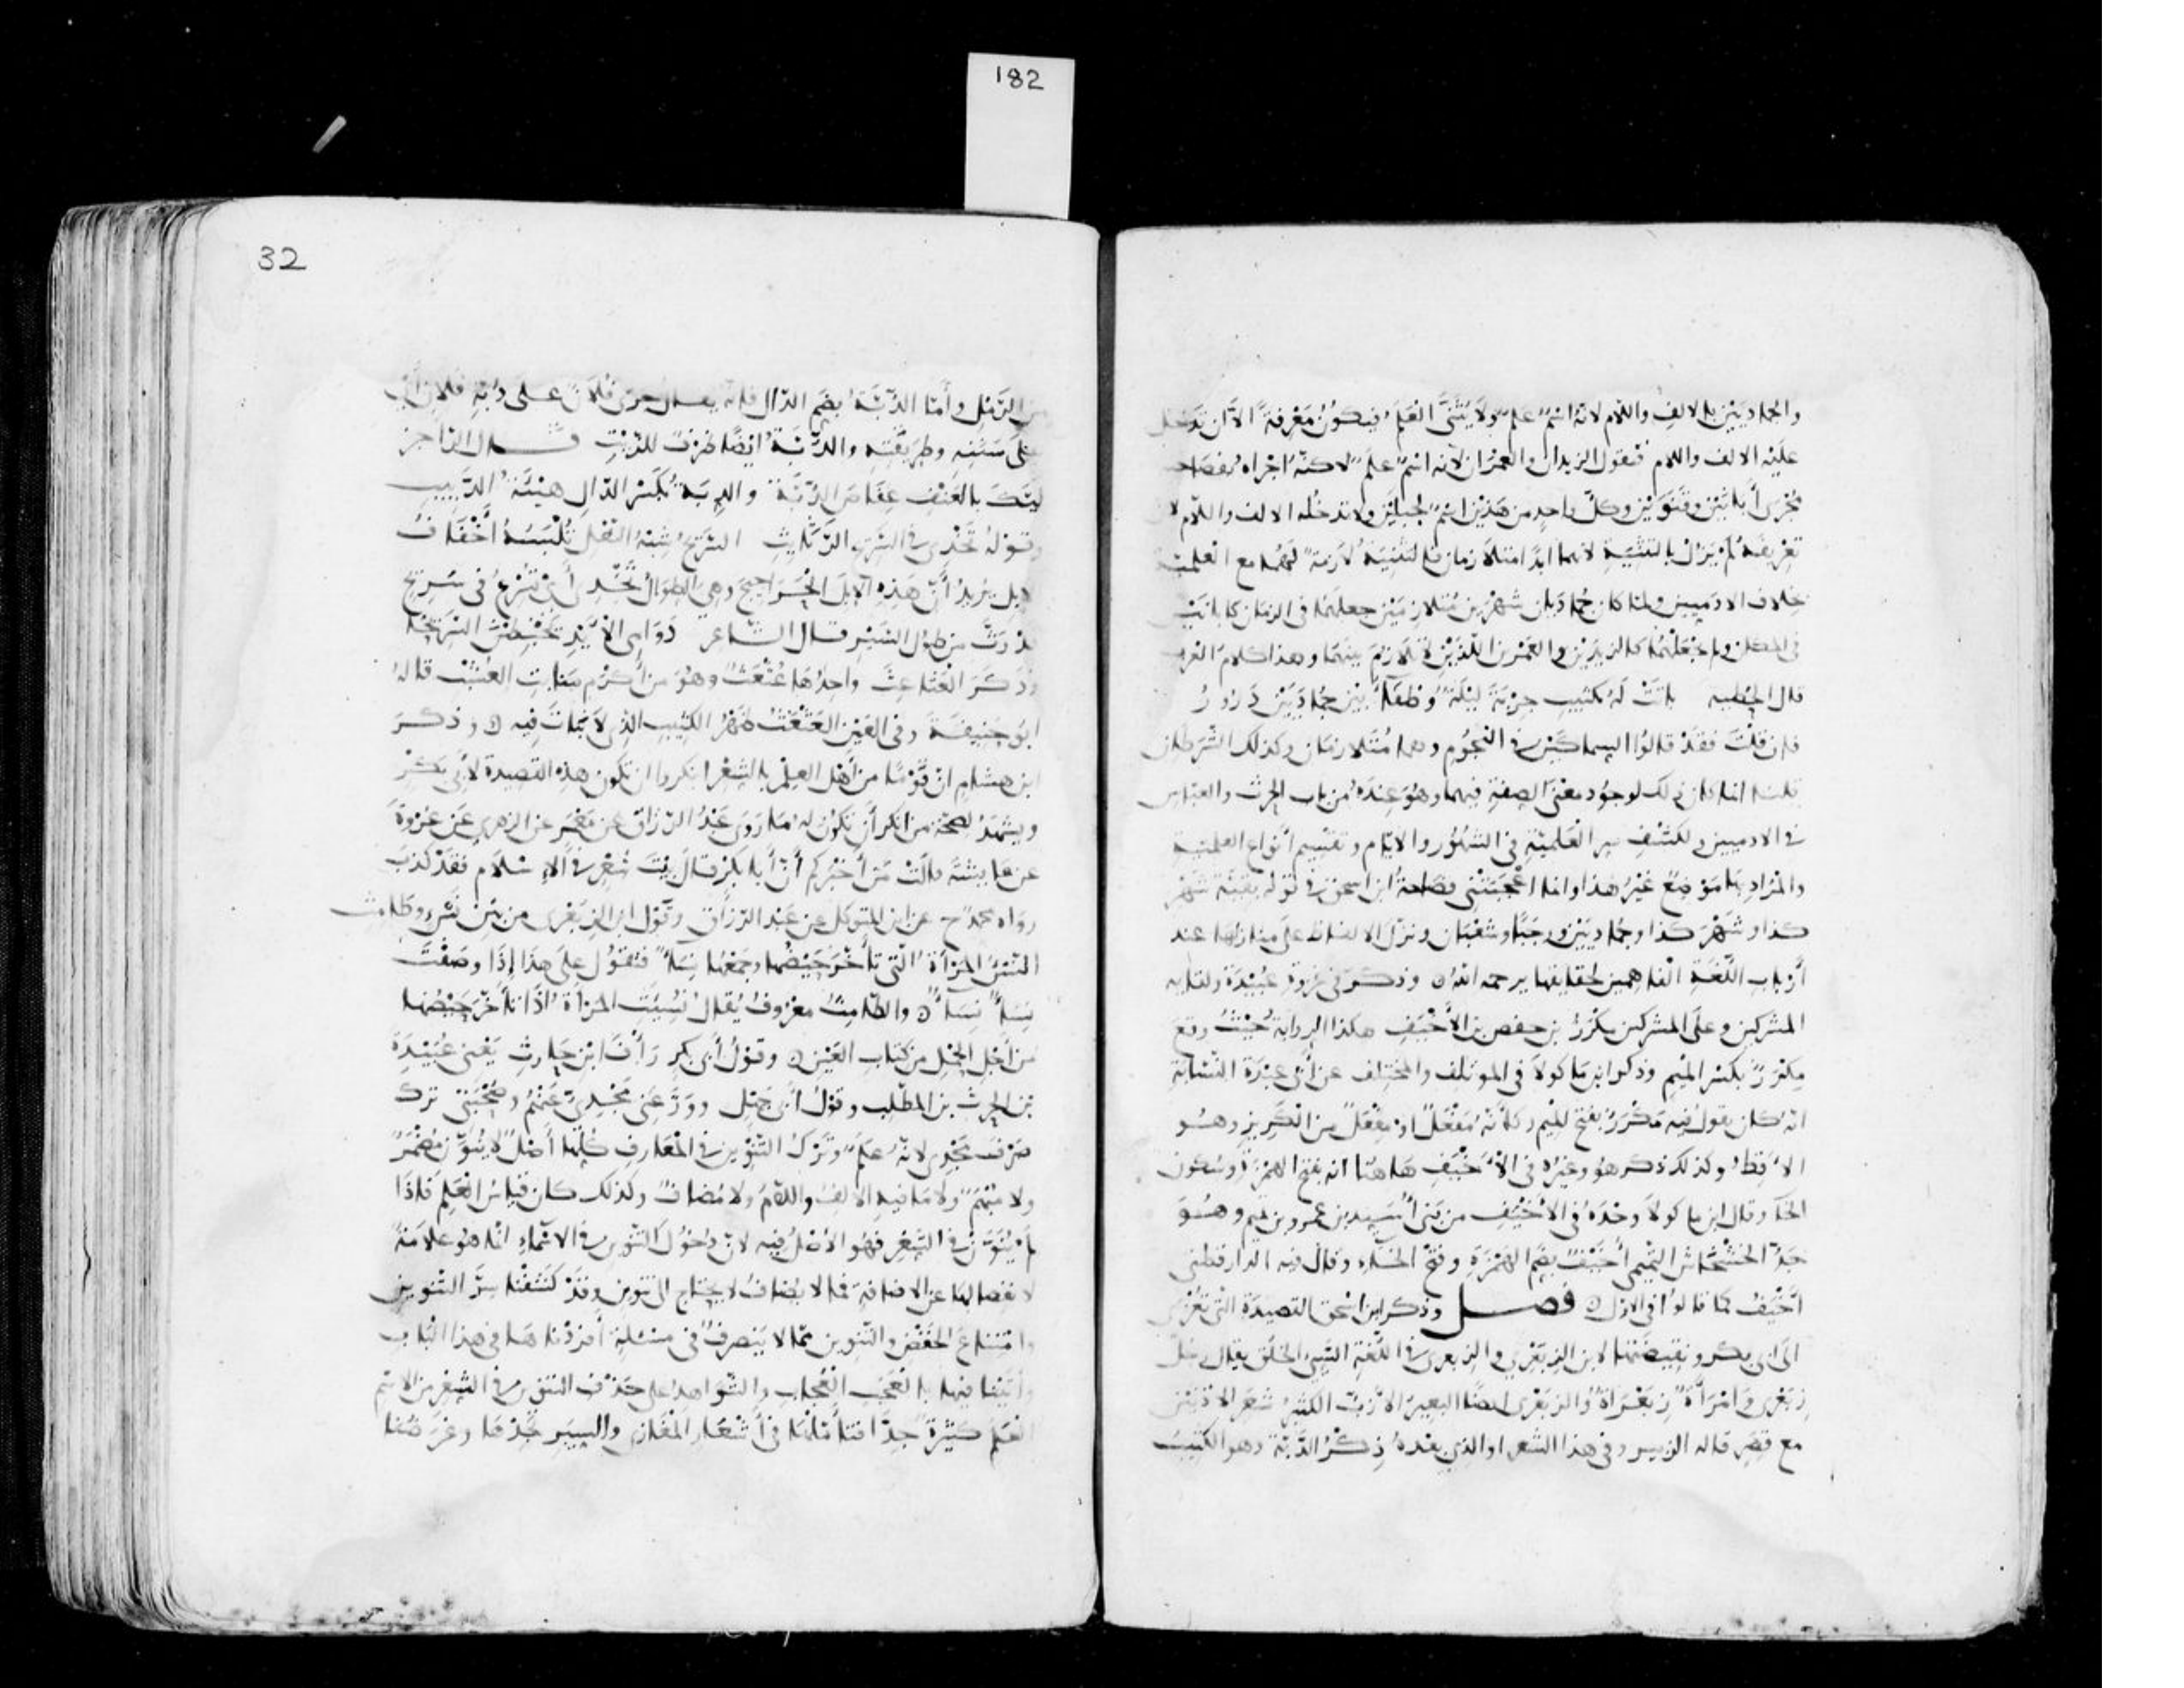 182
والجماديين بالالف واللام لانه اسم علم ولا يثنى العلم فيكون معرفة الا ان تدخل
عليه الالف واللام فتقول الزيدان والعمران لانه اسم علم لاكنه اجراه بفصاحته
مجرى أبانين وقنوين وكل واحد من هذين اسم لجبلين ولا تدخله الالف واللام لان
تعريفه لم يزل بالتثنية لانهما ابدا متلازمان فالتثنية لازمة لهما مع العلمية
بخلاف الادميين ولما كان جماديان شهرين متلازمين جعلهما في الزمان كابانين
في المكان ولم يجعلهما كالزيدين والعمرين اللذين لا تلازم بينهما وهذا كلام العرب
قال الحطيه باتت له بكثيب جربة ليلة وطفاء بين جماديين درور
فان قلت فقد قالوا السماكين في النجوم وهما متلازمان وكذلك الشرطان
قلنا انما كان ذلك لوجود معنى الصفة فيهما وهو عنده من باب الحرث والعباس
في الادميين ولكشف سر العلمية في الشهور والايام وتقسيم أنواع العلمية
والمراد بها موضع غير هذا وانما اعجبتني فصاحة ابن اسحق في قوله بقية شهر
كذا وشهر كذا وجماديين ورجبا وشعبان ونزل الالفاظ على منازلها عند
أرباب اللغة الفاهمين لحقايقها يرحمه الله وذكر في غزوة عبيدة ولقايه
المشركين وعلى المشركين مكرز بن حفص بن الأخيف هكذا الرواية حيث وقع
مكرز بكسر الميم وذكر ابن ماكولا في الموتلف والمختلف عن أبي عبدة النسابة
انه كان يقول فيه مكرز بفتح الميم وكأنه مفعل او مفعل من الكريز وهو
الأقط وكذلك ذكر هو وغيره في الأخيف هاهنا انه بفتح الهمزة وسكون
الخا وقال ابن ماكولا وحده في الأخيف من بني أسيد بن عمرو بن تميم وهو
جد الخشخاش التميمي أخيف بضم الهمزة وفتح الخاء وقال فيه الدارقطني
أخيف كما قالوا في الاول فصل وذكر ابن اسحق القصيدة التي تعزى
الى ابي بكر ونقيضتها لابن الزبعرى والزبعرى في اللغة السيئ الخلق يقال رجل
زبعرى وامرأة زبعراة والزبعرى ايضا البعير الأزب الكثير شعر الاذنين
مع قصر قاله الزبير وفي هذا الشعر او الذي بعده ذكر الدبة وهو الكثيب
32
من الرمل وأما الدبة بضم الدال فإنه يقال جرى فلان على دبة فلان أي
على سننه وطريقته والدبة ايضا ظرف للزيت قال الراجز
ليك بالعنف عفاص الدبة والدبة بكسر الدال هيئة الدبيب
وقوله تحدى في السريح الرثايث السريح شبه النعل تلبسه أخفاف
الابل يريد أن هذه الابل الحراجيج وهي الطوال تحدى أي تسرع في سريح
قد رث من طول السير قال الشاعر دوامي الأيد يخبطن السريحا
وذكر العثاعث واحدها عثعث وهو من أكرم منابت العشب قاله
ابو حنيفة وفي العين العثعث ظهر الكثيب الذي لا نبات فيه وذكر
ابن هشام ان قوما من أهل العلم بالشعر انكروا ان تكون هذه القصيدة لأبي بكر
ويشهد لصحة من انكر أن تكون له ما روى عبد الرزاق عن معمر عن الزهري عن عروة
عن عايشة قالت من أخبركم أن أبا بكر قال بيت شعر في الإسلام فقد كذب
رواه محمد ح عن ابن المتوكل عن عبد الرزاق وقول ابن الزبعرى من بين نسء وطامث
النسء المرأة التي تأخر حيضها وجمعها نساء فتقول على هذا إذا وصفت
نساء نساء والطامث معروف يقال نسيت المرأة اذا تأخر حيضها
من أجل الحمل من كتاب العين وقول أبي بكر رأف ابن حارث يعني عبيدة
بن الحرث بن المطلب وقول أبي جهل وورع عني مجدي عنهم وصحبتي ترك
صرف مجدي لانه علم وترك التنوين في المعارف كلها أصل لا ينون مضمر
ولا مبهم ولا ما فيه الالف واللام ولا مضاف وكذلك كان قياس العلم فإذا
لم ينون في الشعر فهو الأصل فيه لان دخول التنوين في الاسماء انما هو علامة
لانفصالها عن الاضافة فما لا يضاف لا يحتاج الى تنوين وقد كشفنا سر التنوين
وامتناع الخفض والتنوين مما لا ينصرف في مسئلة أفردناها في هذا الباب
وأتينا فيها بالعجب العجاب والشواهد على حذف التنوين في الشعر من الاسم
العلم كثيرة جدا فتأملها في أشعار المغازي والسير تجدها وعرضنا